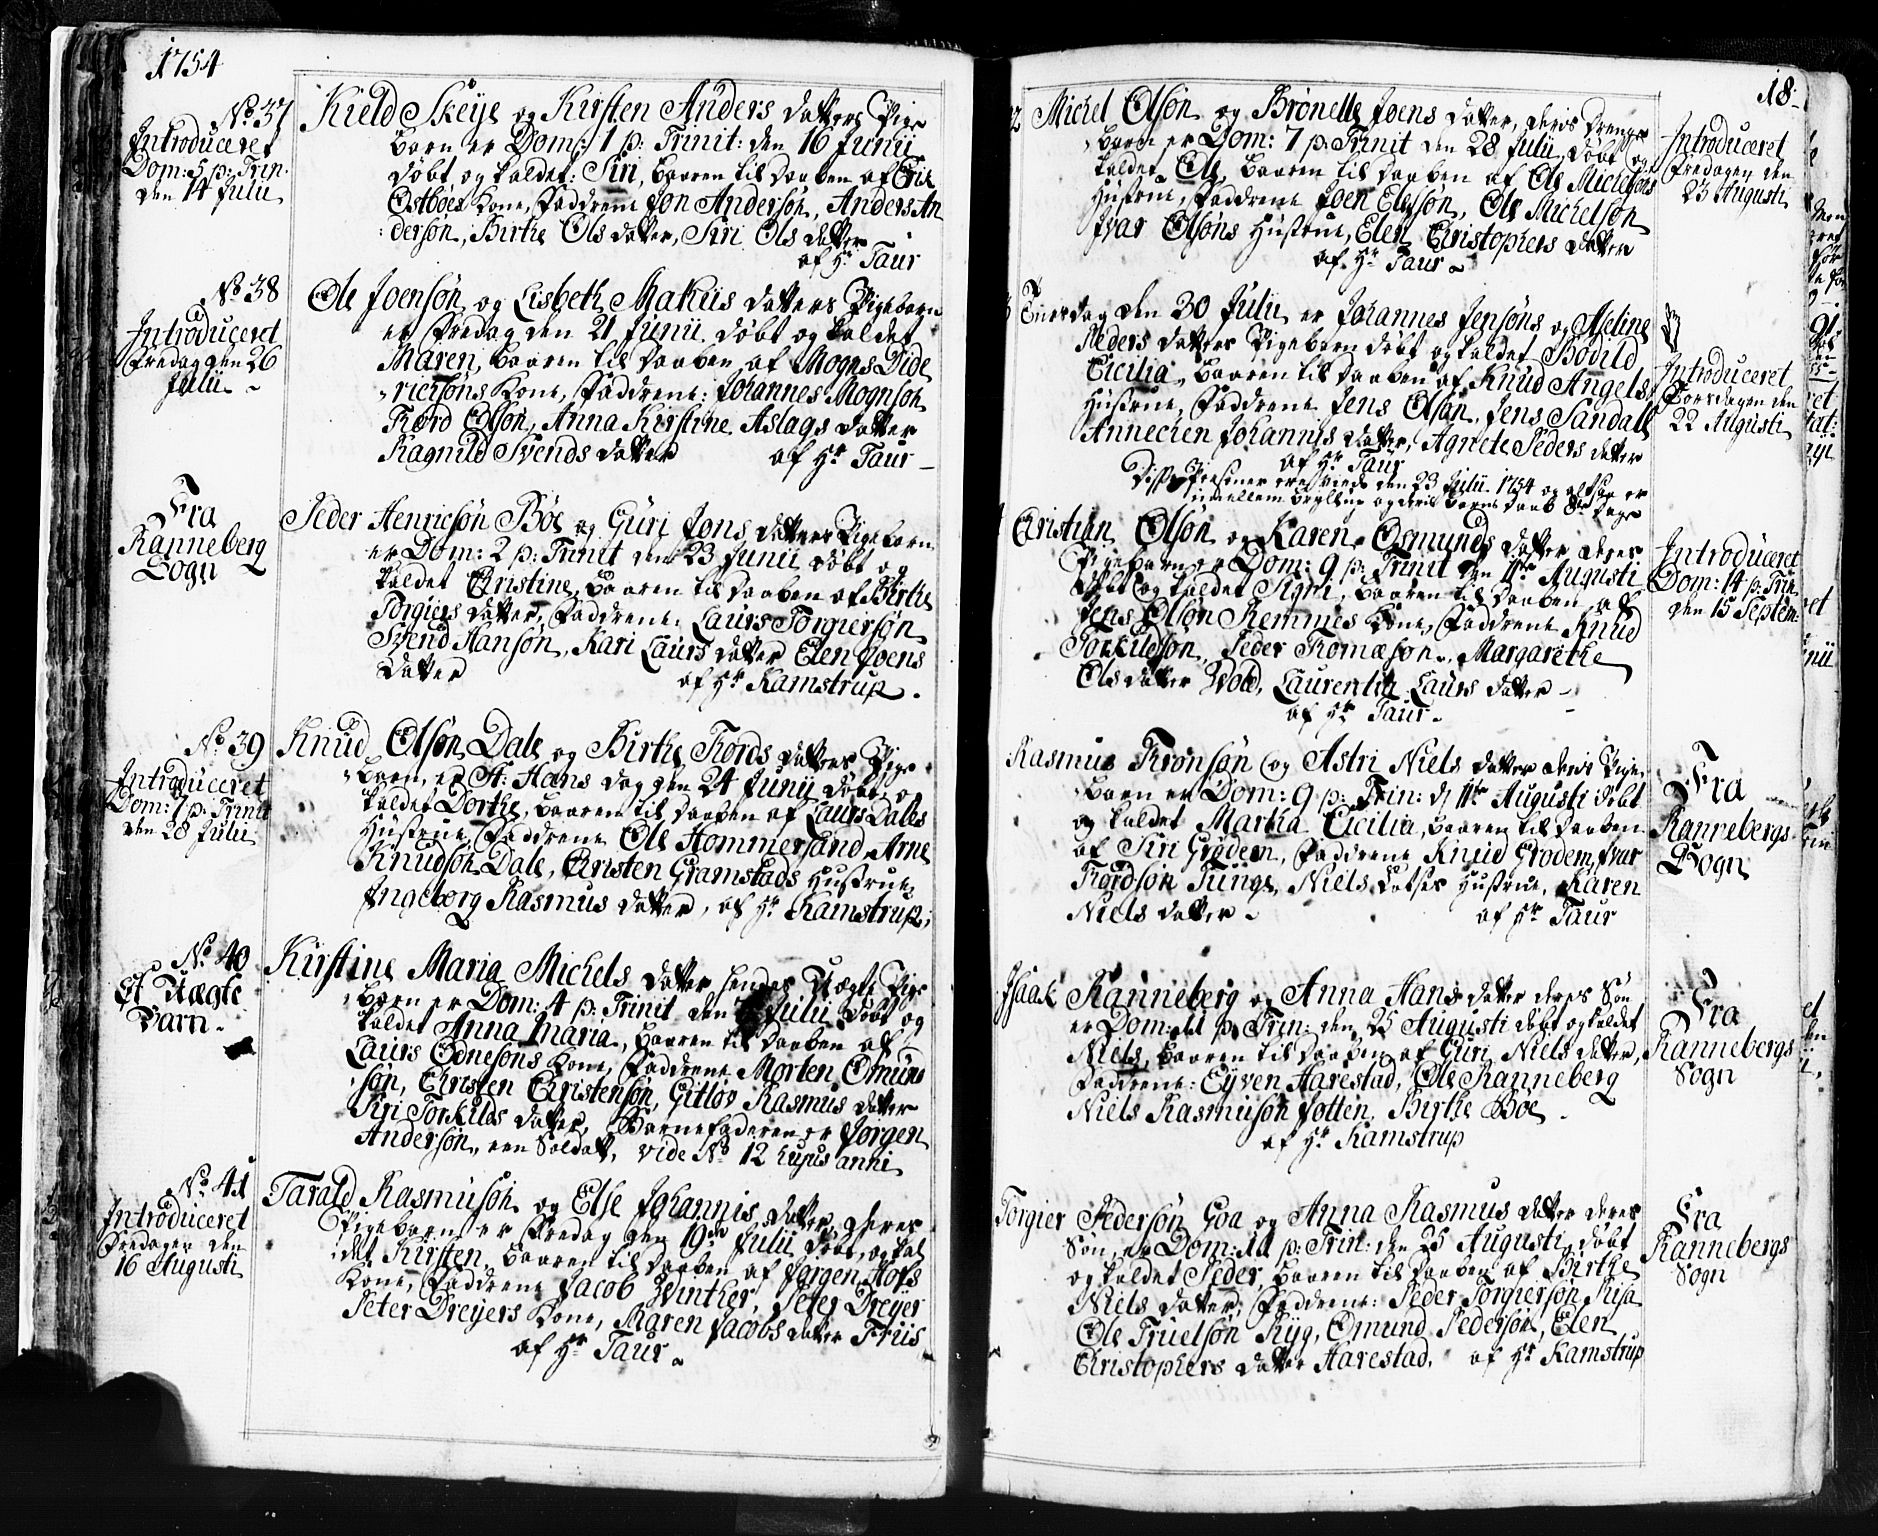 1754
No 37
Introduceret
Dom: 5 p: Trin.
den 14 Julii
Kield Skeije og Kirsten Anders datters Pige
barn er Dom: 1 p: Trinit: den 16 Junii
døbt og kaldet: Siri, baaren til daaben af
Østbøes Kone, Faddrene Jon Andersøn, Anders An
dersøn, Birthe Ols datter, Siri Ols datter
af Hr Taur
No 38
Introduceret
Fredag den 26
Julii
Ole Joensøn og Lisbeth Makuis datters Pigebarn
er Fredag den 21 Junii døbt og kaldet
Maren, baaren til daaben af Mogns Dide
richsøns Kone, Faddrene: Johannes Mognsøn
Tord Olsøn, Anna Kirstine Aslags datter
Ragnild Svends datter af Hr Taur
Fra
Ranneberg
Sogn
Peder Henricsøn Bøe og Guri Jons datters Pigebarn
er Dom: 2 p: Trinit den 23 Junii døbt og
kaldet Christine, baaren til daaben af Birthe
Torgiers datter, Faddrene: Laurs Torgiersøn
Svend Hansøn, Kari Laurs datter Elen Joens
datter af Hr Kamstrup.
No 39
Introduceret
Dom: 7 p: Trinit
den 28 Julii
Knud Olsøn Dale og Birthe Tords datters Pige
barn, er St: Hans dag den 24 Junii døbt og
kaldet Dorthe, baaren til daaben af Laurs Dales
Hustrue, Faddrene Ole Hommersand Arne
Knudsøn Dale, Christen Gramstads Hustrue
Ingeborg Rasmus datter, af Hr Kamstrup,
No 40
Et Uægte
Barn.
Kirstine Maria Michels datter hendes Uægte Pige
barn er Dom: 4 p: Trinit den Julii døbt og
kaldet Anna Maria, baaren til daaben af
Laurs Ednesøns Kone, Faddrene Morten Omund
søn, Christen Christensøn, Gitløv Rasmus datter
Siri Torkilds datter, Barnefaderen er Jørgen
Andersøn, een Soldat, vide No 12 hujus anni
No 41
Introduceret
Fredagen den
16 Augusti
Tarald Rasmusøn og Else Johannis datter, deres
Pigebarn er Fredag den 19de Julii døbt, og kal
det Kirsten, baaren til daaben af Jørgen Hofs
Kone, Faddrene Jacob Winther, Peter Dreyer
Peter Dreyers Kone, Maren Jacobs datter Friis
af Hr Taur
18
Michel Olsøn og Brønelle Joens datter, deris Drenge
barn er Dom: 7 p: Trinit den 28 Julii, døbt og
kaldet Ole, baaren til daaben af Ole Michelsøns
Hustrue, Faddrene Joen Elefsøn, Ole Michelsøn
Ivar Olsøns Hustrue, Elen Christophers datter
af Hr Taur
Introduceret
Fredagen den
23 Augusti
Tiirsdag den 30 Julii er Johannes Jensøns og Aseline
Peders datters Pigebarn døbt og kaldet Bodild
Cicilia, baaren til daaben af Knud Angels
Hustrue, Faddrene Jens Olsøn, Jens Sandall
Annechen Johannis datter, Agnete Peders datter
af Hr Taur
Disse Personer ere viede den 23 Julii 1754 og altsaa er
imellem bryllup og deris barns daab 8te dage
Introduceret
Torsdagen den
22 Augusti
Christian Olsøn og Karen Osmunds datter deres
Pigebarn er Dom: 9 p: Trinit den 11te Augusti
døbt og kaldet Signi, baaren til daaben af
Jens Olsøn Remmes Kone, Faddrene Knud
Torkildsøn, Peder Tomæsøn, Margarethe
Ols datter Wold, Laurentia Laurs datter
af Hr Taur.
Introduceret
Dom: 14 p: Trin
den 15 Septem:
Rasmus Tronsøn og Astri Niels datter deris Pige
barn er Dom: 9 p: Trin: d 11te Augusti døbt
og kaldet Martha Cicilia, baaren til daaben
af Siri Grødem, Faddrene Knud Grødem, Ivar
Tordsøn Tunge, Niels Hustrue, Karen
Niels datter. af Hr Taur
Fra
Rannebergs
Sogn
Isaack Ranneberg og Anna Hans datter deres Søn
er Dom: 11 p: Trin: den 25 Augusti døbt og kaldet
Niels, baaren til daaben af Guri Niels datter,
Faddrene: Eyven Harestad, Ole Ranneberg
Niels Rasmusøn Jotten, Birthe Bøe.
af Hr Kamstrup
Fra
Rannebergs
Sogn
Torgier Pedersøn Goa og Anna Rasmus datter deres
Søn, er Dom: 11 p: Trin: den 25 Augusti døbt
og kaldet Peder, baaren til daaben af Birthe
Niels datter, Faddrene: Peder Torgiersøn Risa
Ole Truelsøn Ryg, Omund Pedersøn, Elen
Christophers datter Harestad, af Hr Kamstrup
Fra
Rannebergs
Sogn